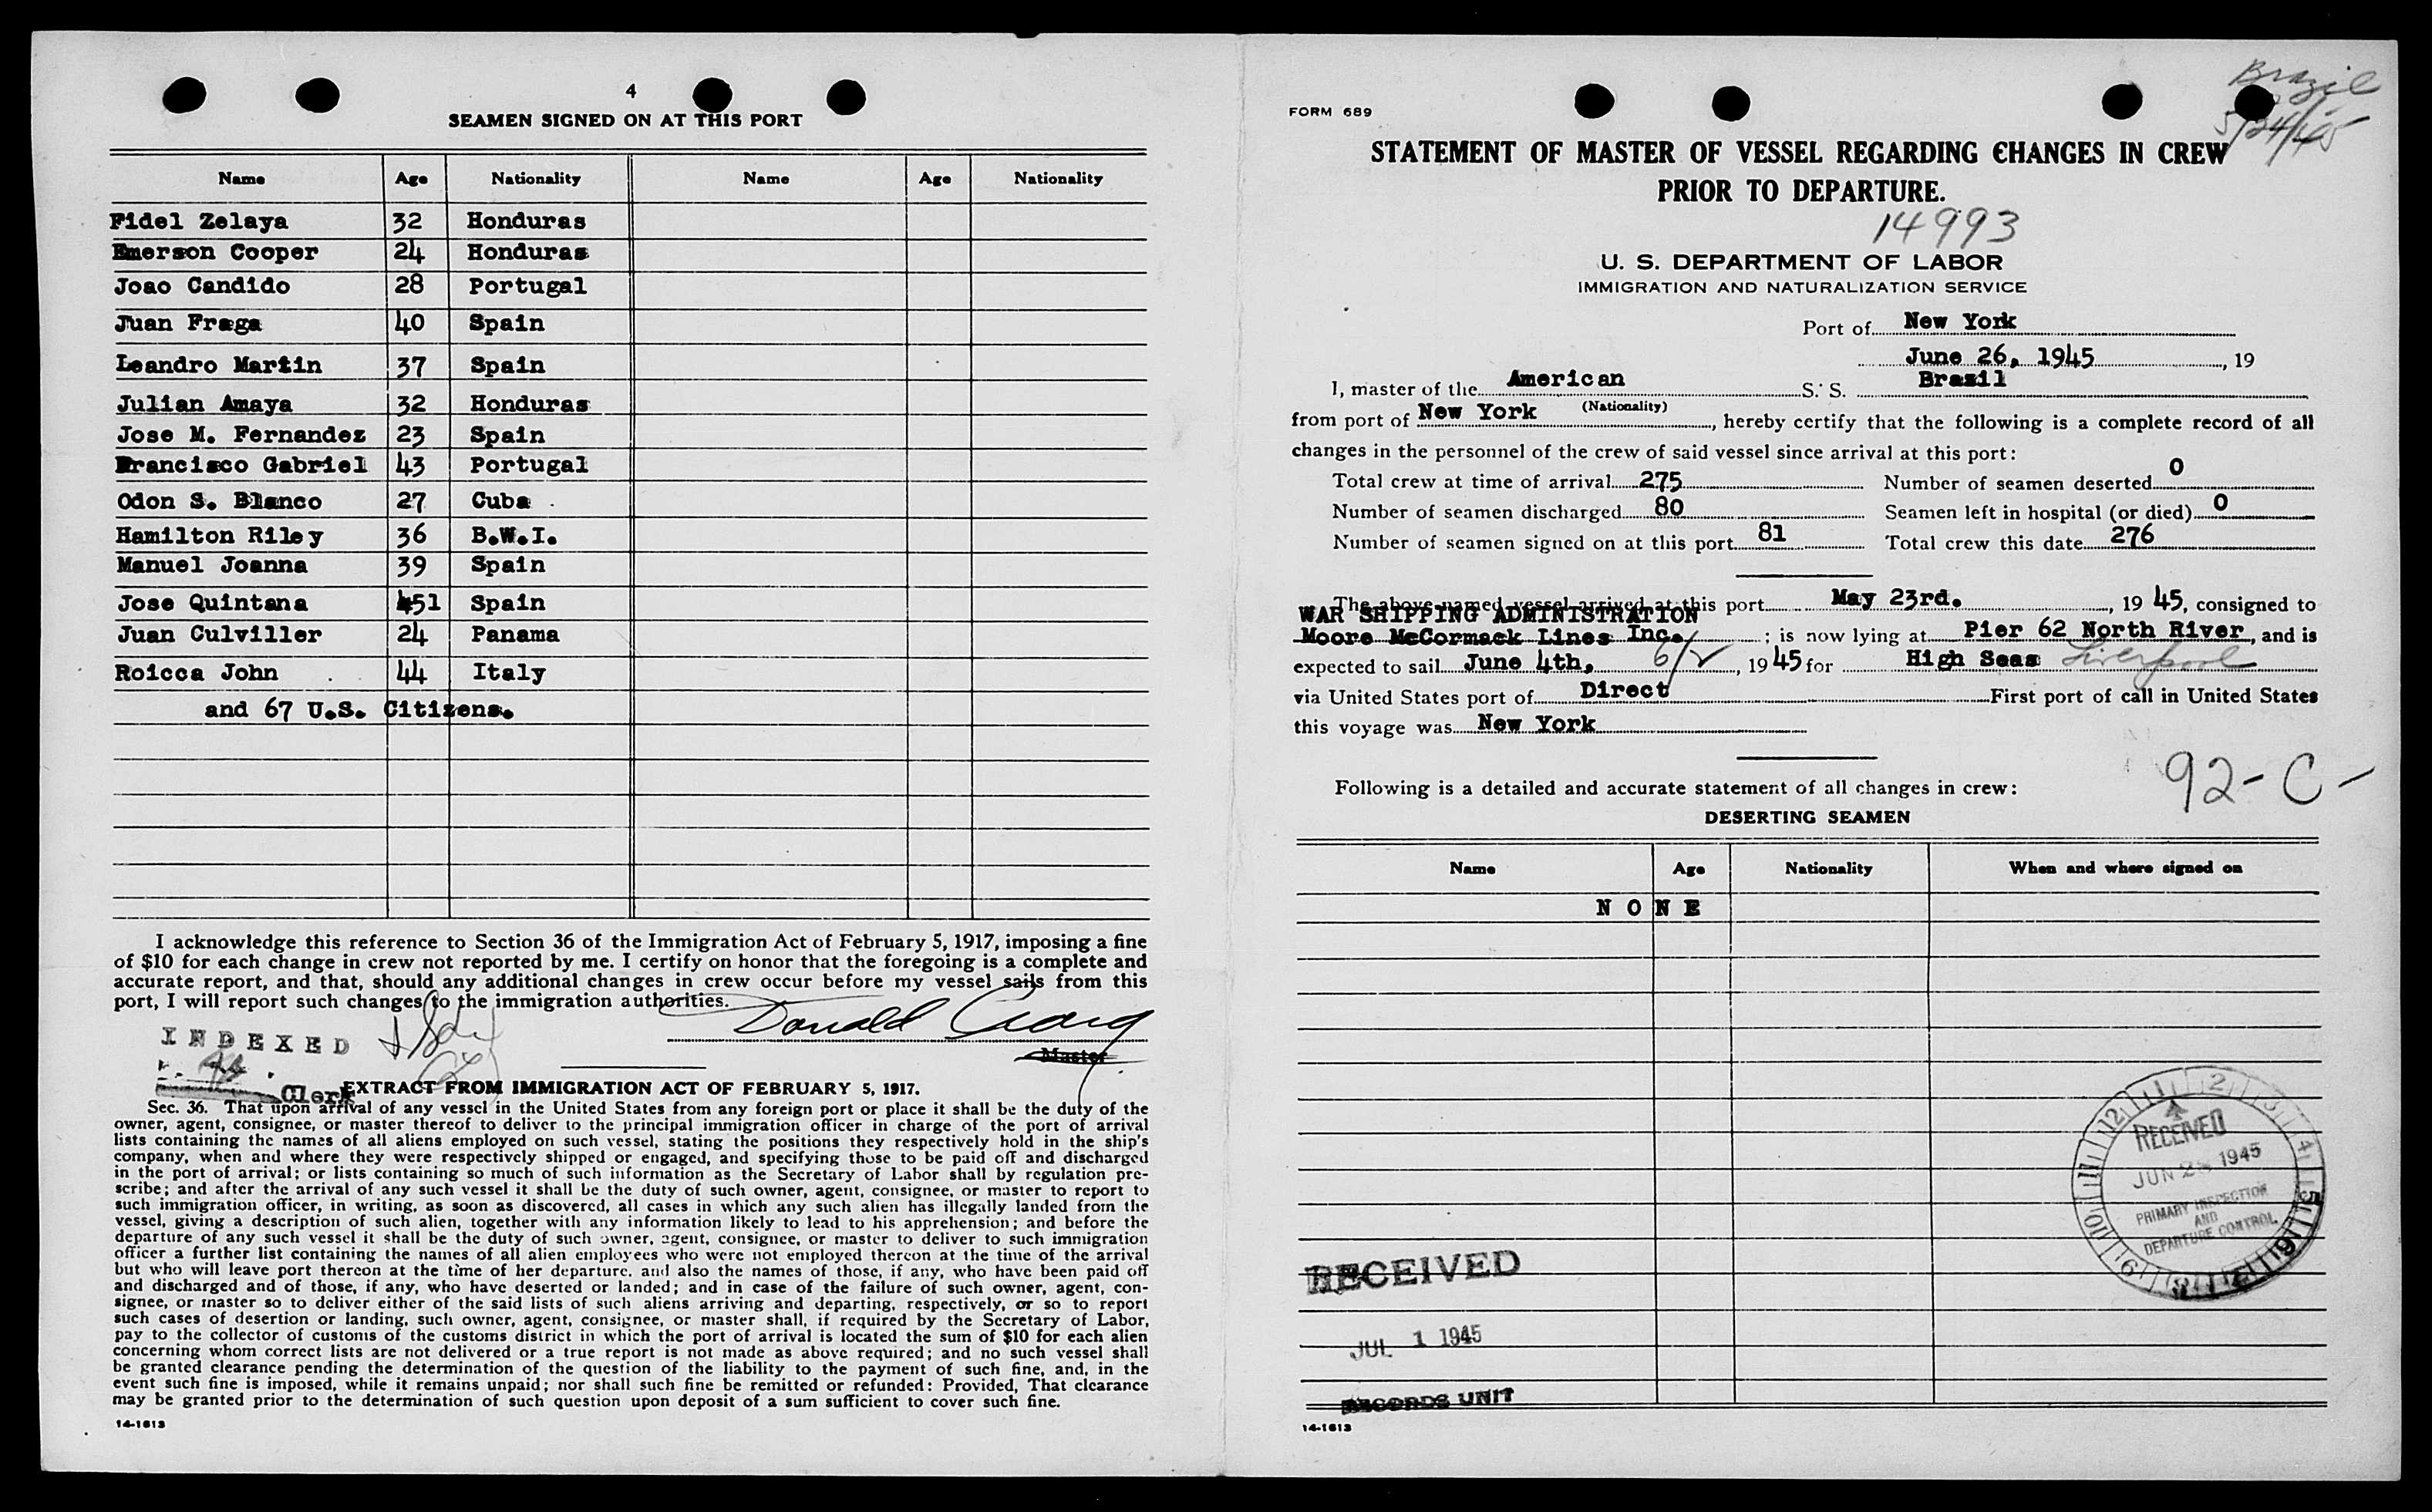 4
SEAMEN SIGNED ON AT THIS PORT
Name Age Nationality Name Age Nationality
Fidel Zelaya 32 Honduras
Emerson Cooper 24 Honduras
Joao Candido 28 Portugal
Juan Fraga 40 Spain
Leandro Martin 37 Spain
Julian Amaya 32 Honduras
Jose M. Fernandez 23 Spain
Francisco Gabriel 43 Portugal
Odon S. Blanco 27 Cuba
Hamilton Riley 36 B.W.I.
Manuel Joanna 39 Spain
Jose Quintana 51 Spain
Juan Culviller 24 Panama
Roicca John 44 Italy
and 67 U.S. Citizens.
I acknowledge this reference to Section 36 of the Immigration Act of February 5, 1917, imposing a fine
of $10 for each change in crew not reported by me. I certify on honor that the foregoing is a complete and
accurate report, and that, should any additional changes in crew occur before my vessel sails from this
port, I will report such changes to the immigration authorities.
Donald Craig
Master
INDEXED
Clerk
EXTRACT FROM IMMIGRATION ACT OF FEBRUARY 5, 1917.
Sec. 36. That upon arrival of any vessel in the United States from any foreign port or place it shall be the duty of the
owner, agent, consignee, or master thereof to deliver to the principal immigration officer in charge of the port of arrival
lists containing the names of all aliens employed on such vessel, stating the positions they respectively hold in the ship's
company, when and where they were respectively shipped or engaged, and specifying those to be paid off and discharged
in the port of arrival; or lists containing so much of such information as the Secretary of Labor shall by regulation pre-
scribe; and after the arrival of any such vessel it shall be the duty of such owner, agent, consignee, or master to report to
such immigration officer, in writing, as soon as discovered, all cases in which any such alien has illegally landed from the
vessel, giving a description of such alien, together with any information likely to lead to his apprehension; and before the
departure of any such vessel it shall be the duty of such owner, agent, consignee, or master to deliver to such immigration
officer a further list containing the names of all alien employees who were not employed thereon at the time of the arrival
but who will leave port thereon at the time of her departure, and also the names of those, if any, who have been paid off
and discharged and of those, if any, who have deserted or landed; and in case of the failure of such owner, agent, con-
signee, or master so to deliver either of the said lists of such aliens arriving and departing, respectively, or so to report
such cases of desertion or landing, such owner, agent, consignee, or master shall, if required by the Secretary of Labor,
pay to the collector of customs of the customs district in which the port of arrival is located the sum of $10 for each alien
concerning whom correct lists are not delivered or a true report is not made as above required; and no such vessel shall
be granted clearance pending the determination of the question of the liability to the payment of such fine, and, in the
event such fine is imposed, while it remains unpaid; nor shall such fine be remitted or refunded: Provided, That clearance
may be granted prior to the determination of such question upon deposit of a sum sufficient to cover such fine.
14-1613
Brazil
5/24/45
FORM 689
STATEMENT OF MASTER OF VESSEL REGARDING CHANGES IN CREW
PRIOR TO DEPARTURE.
14993
U. S. DEPARTMENT OF LABOR
IMMIGRATION AND NATURALIZATION SERVICE
Port of New York
June 26, 1945, 19
I, master of the American S. S. Brazil
(Nationality)
from port of New York, hereby certify that the following is a complete record of all
changes in the personnel of the crew of said vessel since arrival at this port:
Total crew at time of arrival 275 Number of seamen deserted 0
Number of seamen discharged 80 Seamen left in hospital (or died) 0
Number of seamen signed on at this port 81 Total crew this date 276
The above-named vessel arrived at this port May 23rd., 19 45, consigned to
WAR SHIPPING ADMINISTRATION
Moore McCormack Lines Inc. ; is now lying at Pier 62 North River, and is
expected to sail June 4th, 19 45 for High Seas Liverpool
via United States port of Direct First port of call in United States
this voyage was New York
92-C-
Following is a detailed and accurate statement of all changes in crew:
DESERTING SEAMEN
Name Age Nationality When and where signed on
NONE
RECEIVED
JUN 1945
PRIMARY INSPECTION
AND
DEPARTURE CONTROL
RECEIVED
JUL 1 1945
RECORDS UNIT
14-1613